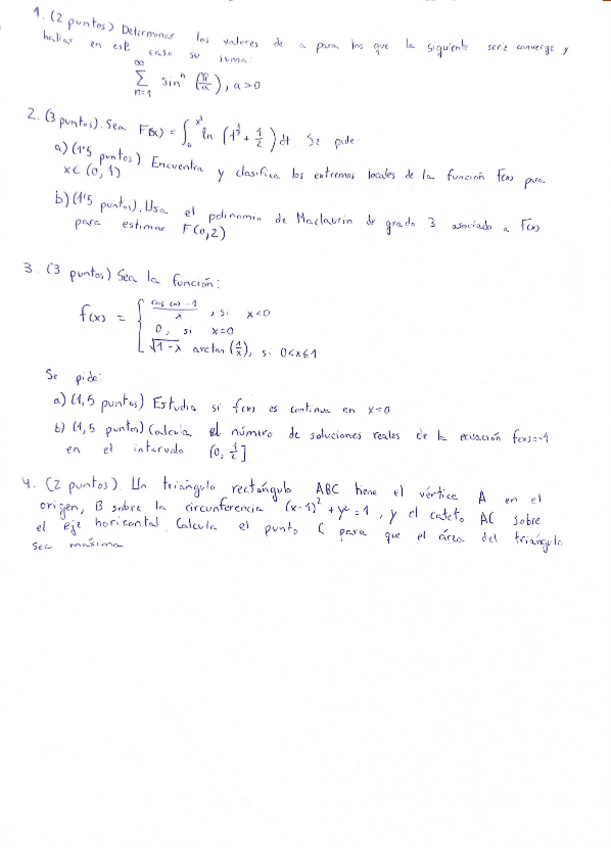 1. (2 puntos) Determinar los valores de a para los que la siguiente serie converge y
hallar en este caso su suma:
∞
∑ sinⁿ (π/a), a>0
n=1
2. (3 puntos). Sea F(x) = ∫ ln ( + 1/2) dt. Se pide
a) (1'5 puntos) Encuentra y clasifica los extremos locales de la función F(x) para
x ∈ (0, 1)
b) (1'5 puntos). Usa el polinomio de Maclaurin de grado 3 asociado a F(x)
para estimar F(0,2)
3. (3 puntos) Sea la función:
f(x) = { (cos(x)-1)/x , si x<0
0, si x=0
√(1-x) arctan(1/x), si 0<x≤1
Se pide:
a) (1,5 puntos) Estudia si f(x) es continua en x=0
b) (1,5 puntos) Calcula el número de soluciones reales de la ecuación f(x)=-1
en el intervalo (0, 1/2]
4. (2 puntos). Un triángulo rectángulo ABC tiene el vértice A en el
origen, B sobre la circunferencia (x-1)² + y² = 1, y el cateto AC sobre
el eje horizontal. Calcula el punto C para que el área del triángulo
sea máxima